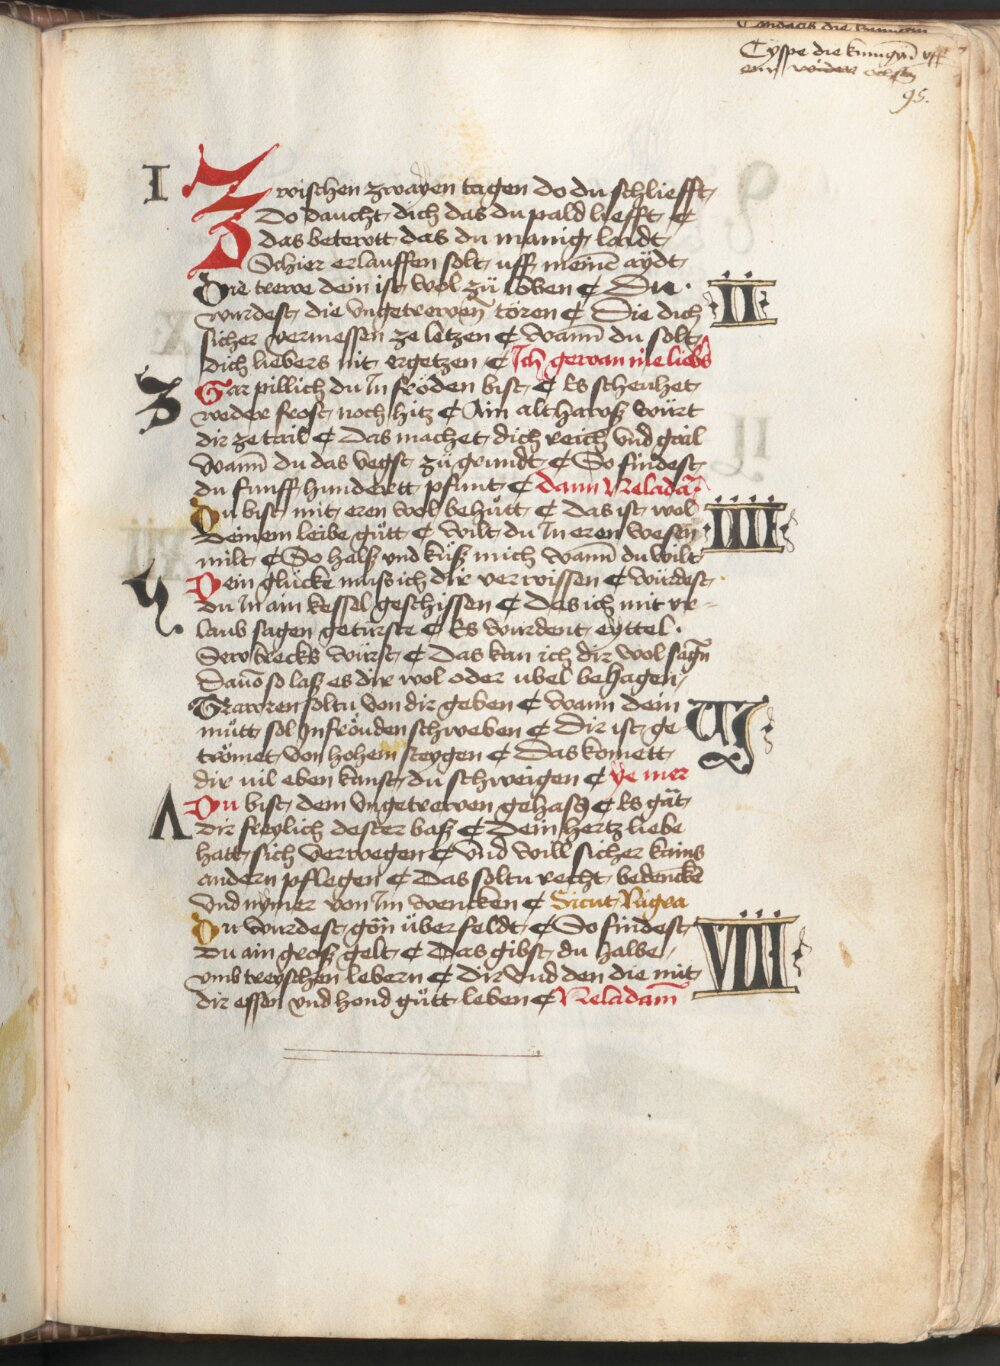 Tyspe die kunigin̄ vff
95.
I
Zwischen zwayen tagen do du schliefft
Do daucht dich das du pald liefft ¢
das beterott das du manig landt
Schier erlauffen solt uff meinē aydt
Die trewe dein ist wol zů loben ¢ Du
II
wurdest die vngetrewen̄ tören ¢ Die dich
sicher vermessen ze letzen ¢ wann̄ du solt
dich liebers nit ergetzen ¢ Ich gewan nie liebs
3
Gar pillich du in fröden bist ¢ Es scheuhet
weder frost noch hitz ¢ Ain alt haws würt
dir ze tail ¢ Das machet dich reich vnd gail
wann̄ du das vegst zů grundt ¢ So findest
du funff hunderтt pfunt ¢ dann
IIII
Du bist mit eren wol behůtt ¢ das ist wol
deinem leibe gůtt ¢ wilt du in eren wesen
milt ¢ So halß vnd küß mich wann̄ du wilt
Dein glücke muss ich dir verwissen ¢ würdest
du in ain kessel geschissen ¢ des ich mit vr-
laub sagen geturste ¢ Es wurdent eyttel
Sewdrecks würst ¢ Das kan ich dir wol sagn̄
Dauō so laß es dir wol oder ubel behagen
Trawren soltu von dir geben ¢ wann dein
můtt sol in fröuden schweben ¢ Dir ist ge
trömet von hohem steygen ¢ Das komett
dir uil eben kanst du schweigen ¢ ye mer
Λ
Du bist dem vngetrewen gehass ¢ Es gät
dir freylich dester baß ¢ Dein hertz liebe
hatt sich verwegen ¢ vnd will sicher kains
andern pflegen ¢ Das soltu recht bedencke
vnd nymer von im wencken ¢ Sicut
VIII
Du wurdest gön̄ über feldt ¢ So findest
du ain groß gelt ¢ Das gibst du halbe
vmb treyschen lebern ¢ dir vnd den die mit
dir essen vnd hond gůtt leben ¢